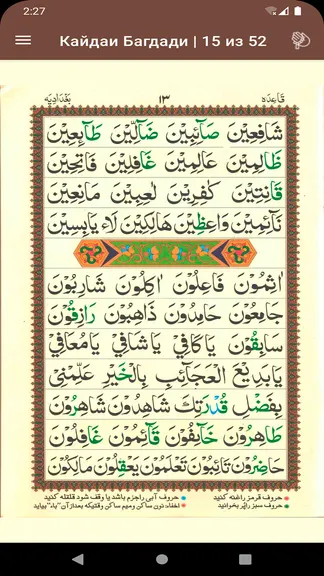 2:27
Кайдаи Багдади | 15 из 52
قاعده ١٣ بغدادیه
شَافِعِيْنَ صَآئِبِيْنَ ضَآلِّيْنَ طَآئِعِيْنَ
ظَالِمِيْنَ عَالِمِيْنَ غَافِلِيْنَ فَاتِحِيْنَ
قَانِتِيْنَ كٰفِرِيْنَ لٰعِبِيْنَ مَانِعِيْنَ
نَآئِمِيْنَ وَاعِظِيْنَ هَالِكِيْنَ لَاءِ يَابِسِيْنَ
اٰثِمُوْنَ فَاعِلُوْنَ اٰكِلُوْنَ شَارِبُوْنَ
جَامِعُوْنَ حَامِدُوْنَ ذَاهِبُوْنَ رَازِقُوْنَ
سَابِقُوْنَ يَا كَافِيْ يَا شَافِيْ يَا مُعَافِيْ
يَا بَدِيْعَ الْعَجَآئِبِ بِالْخَيْرِ عَلِّمْنِيْ
بِفَضْلِ قُدْرَتِكَ شَاهِدُوْنَ شَاهِرُوْنَ
طَاهِرُوْنَ خَآئِفُوْنَ قَآئِمُوْنَ غَافِلُوْنَ
حَاضِرُوْنَ تَائِبُوْنَ تَعْلَمُوْنَ يَعْقِلُوْنَ مَالِكُوْنَ
حروف قرمز راغنه کنید حروف آبی راجزم باشد یا وقف شود قلقله کنید
حروف سبز راپر بخوانید اخفاء: نون ساکن ومیم ساکن وقتیکه بعدازآن "باء" بیاید